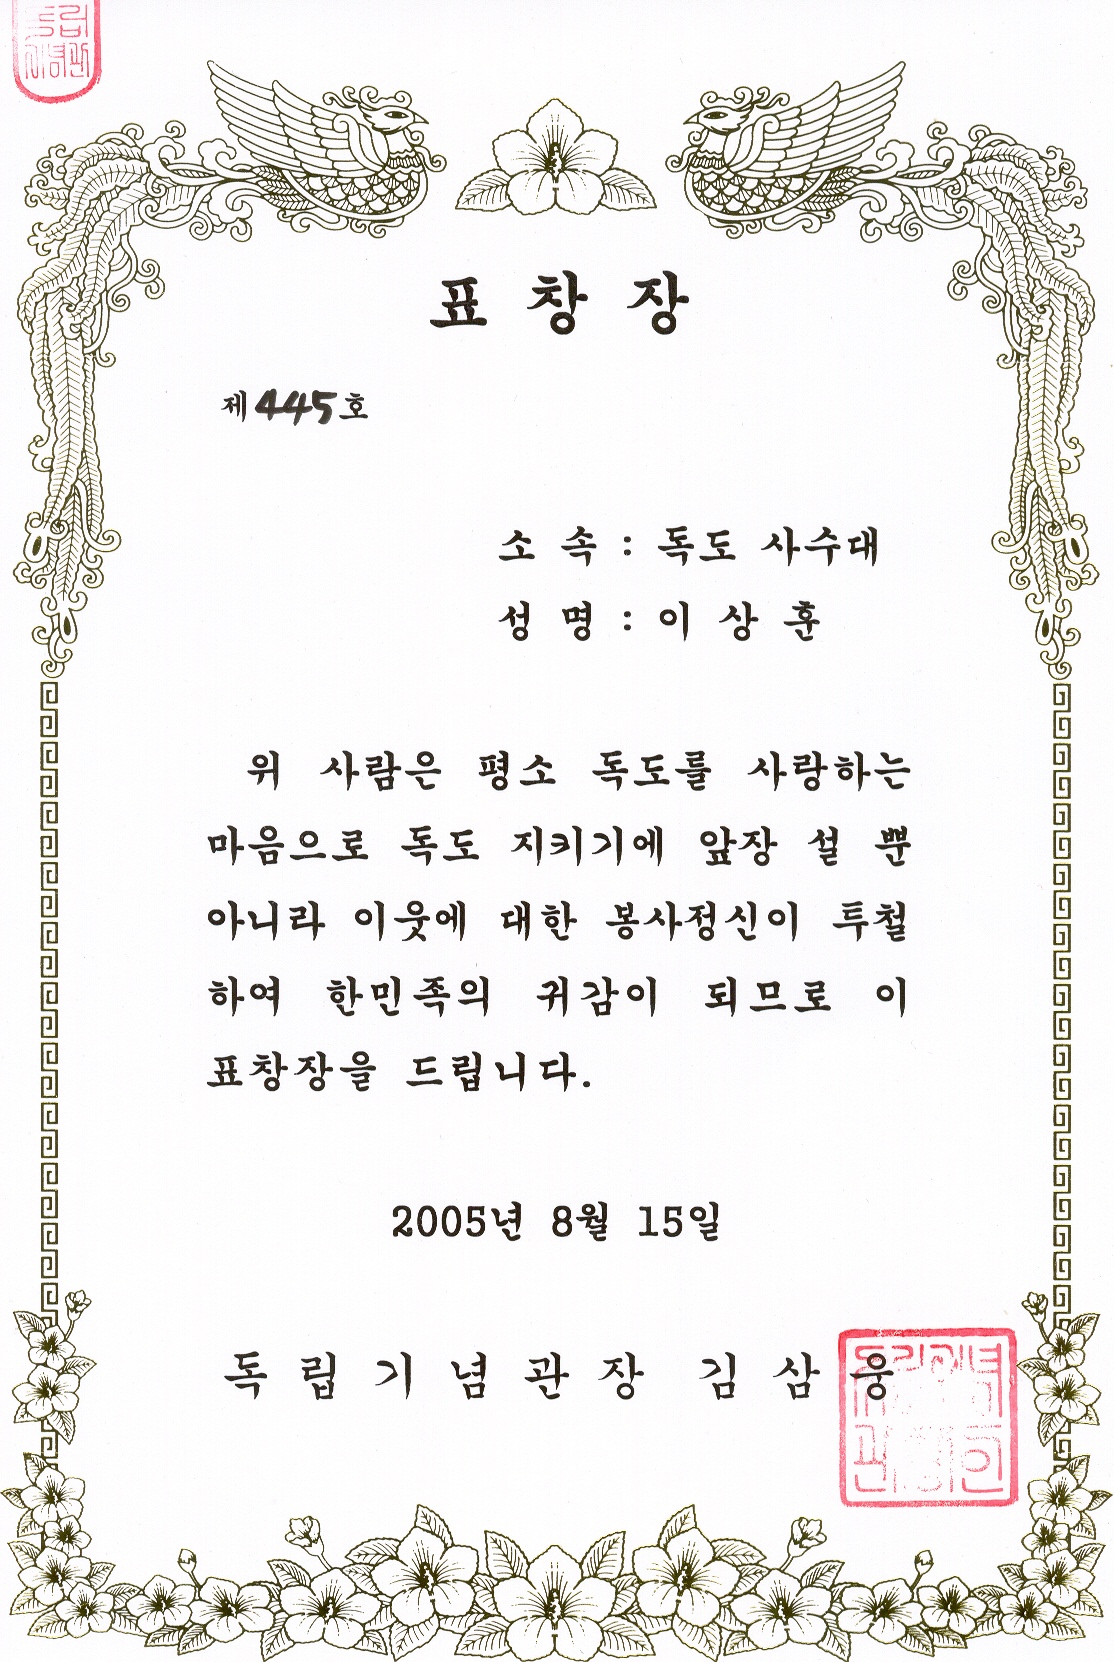 표 창 장
제 445 호
소 속 : 독도 사수대
성 명 : 이 상 훈
위 사람은 평소 독도를 사랑하는
마음으로 독도 지키기에 앞장 설 뿐
아니라 이웃에 대한 봉사정신이 투철
하여 한민족의 귀감이 되므로 이
표창장을 드립니다.
2005년 8월 15일
독 립 기 념 관 장 김 삼 웅